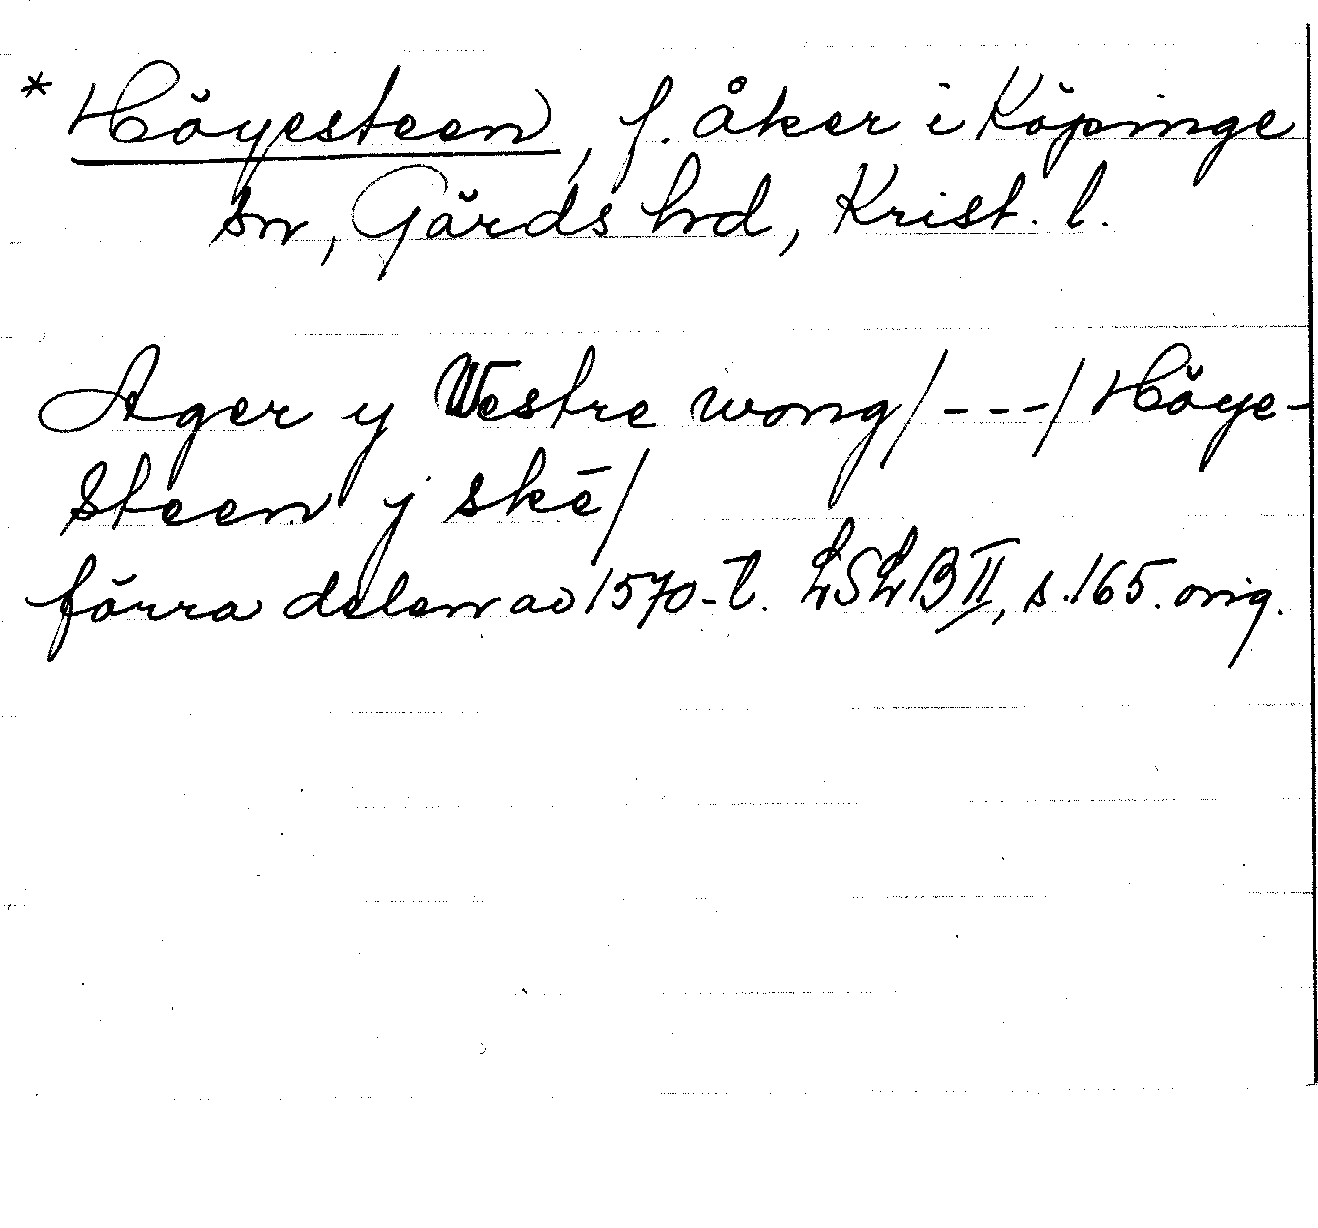 * Höyesteen, f. åker i Köpinge
sn, Gärds hd, Krist. l.
Ager y Westre wong/---/Höye-
steen j skē/
förra delen av 1570-t. LSLB II, s. 165. orig.